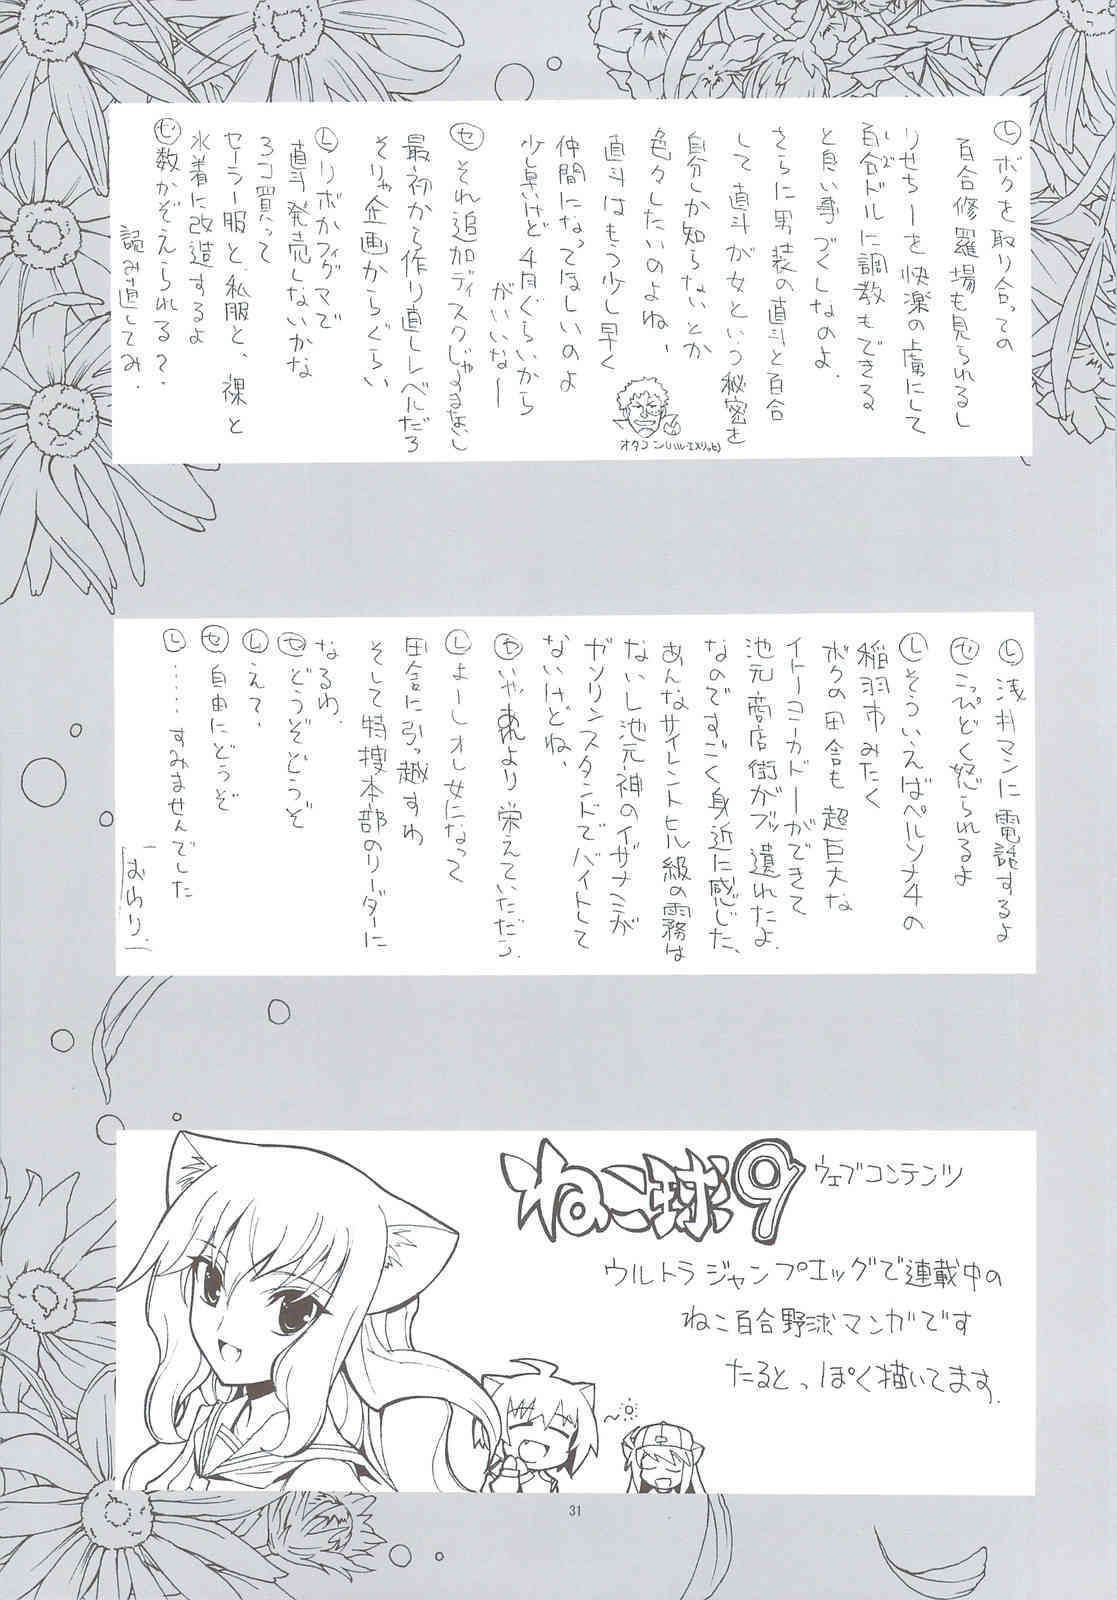 Ⓛボクを取り合っての
百合修羅場も見られるし
りせちーを快楽の虜にして
百合ドルに調教もできる
と良い事づくしなのよ.
さらに男装の直斗と百合
して直斗が女という秘密を
自分しか知らないとか
色々したいのよね、
直斗はもう少し早く
仲間になってほしいのよ
少し臭いけど4月ぐらいから
がいいなー
㋝それ追加ディスクじゃすまないし
最初から作り直しレベルだろ
そりゃ企画からぐらい
Ⓛリボかフィグマで
直斗発売しないかな
3コ買って
セーラー服と、私服と、裸と
水着に改造するよ
㋝数かぞえられる?
読み直してみ.
オタコン(ハル・エメリッヒ)
Ⓛ浅井マンに電話するよ
㋝こっぴどく怒られるよ
Ⓛそういえばペルソナ4の
稲羽市みたく
ボクの田舎も超巨大な
イトーヨーカドーができて
池元商店街がブッ遺れたよ.
なのですごく身近に感じた、
あんなサイレントヒル級の霧は
ないし池元神のイザナミが
ガソリンスタンドでバイトして
ないけどね、
㋝いやあれより栄えていただろ.
Ⓛよーしオレ女になって
田舎に引っ越すわ
そして特捜本部のリーダーに
なるわ.
㋝どうぞどうぞ
Ⓛえて、
㋝自由にどうぞ
Ⓛ……すみませんでした
おわり.
ねこ球9 ウェブコンテンツ
ウルトラジャンプエッグで連載中の
ねこ百合野球マンガです
たるとっぽく描いてます.
31